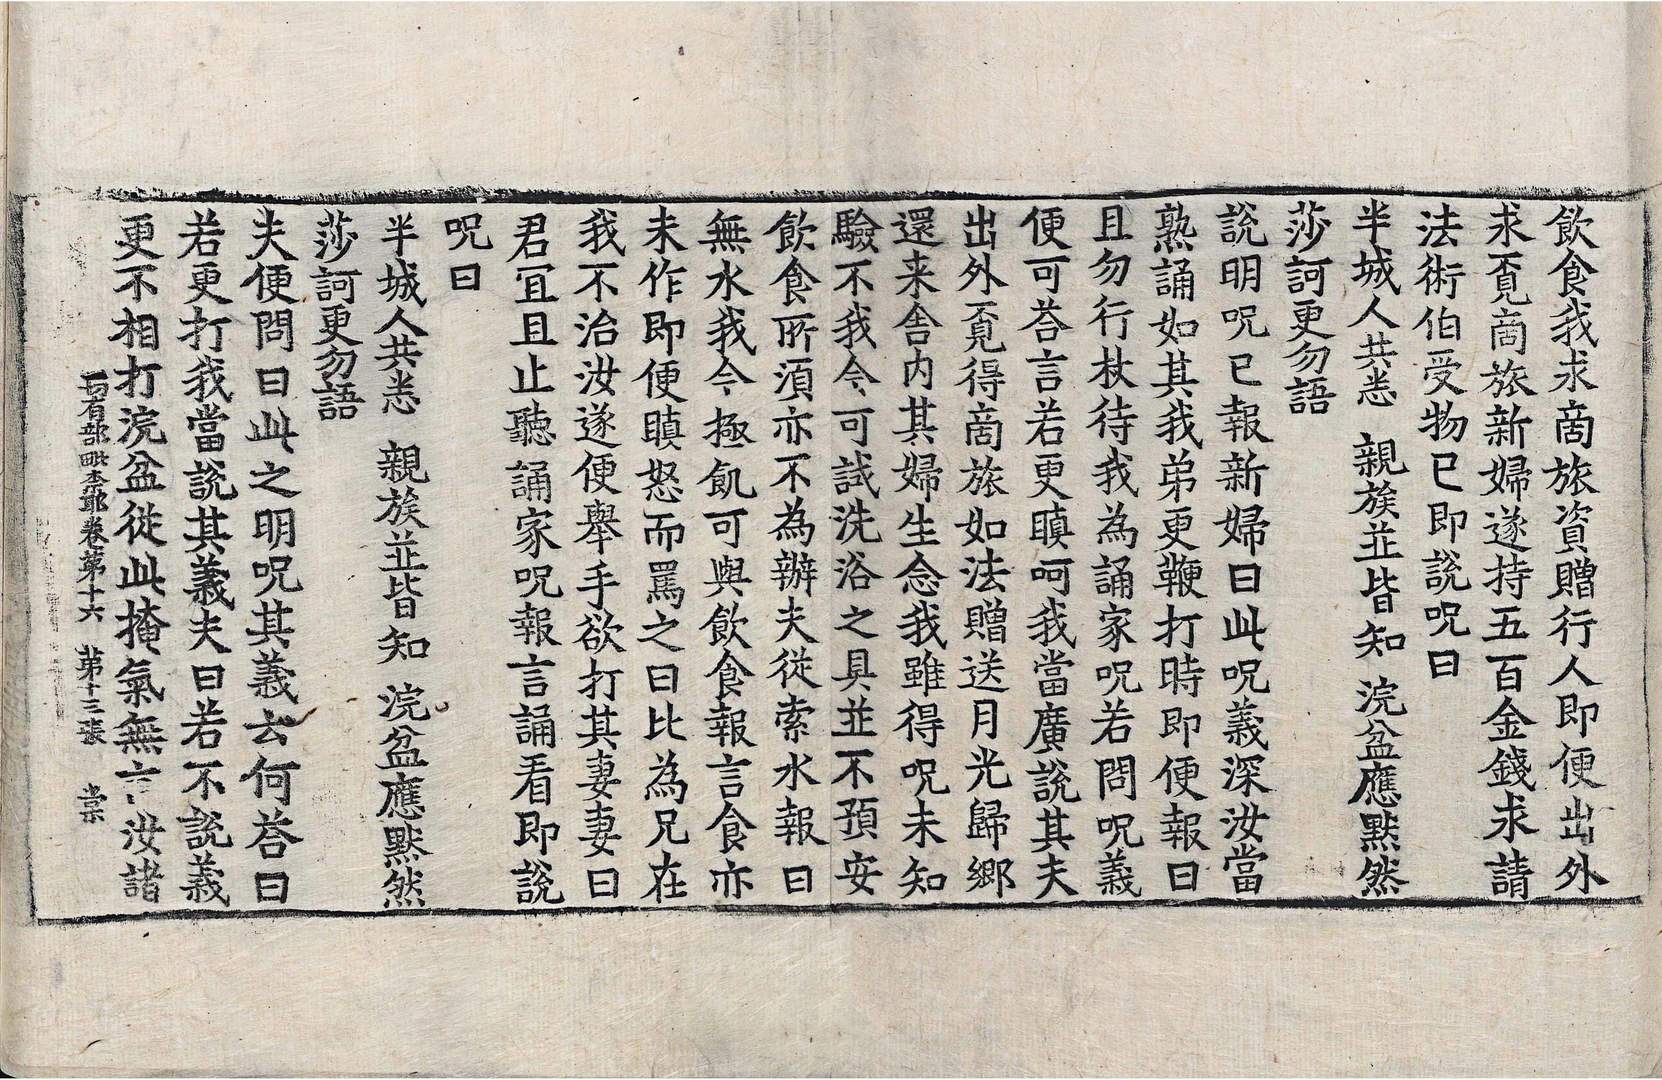 飲食我求啇旅資贈行人即便出外
求覔啇旅新婦遂持五百金錢求請
法術伯受物已即說呪曰
半城人共恚 親族並皆知 浣盆應默然
莎訶更勿語
說明呪已報新婦曰此呪義深汝當
熟誦如其我弟更鞭打時即便報曰
且勿行杖待我為誦家呪若問呪義
便可荅言若更瞋呵我當廣說其夫
出外覔得啇旅如法贈送月光歸鄉
還来舍内其婦生念我雖得呪未知
驗不我今可試洗浴之具並不預安
飲食所湏亦不為辦夫從索水報曰
無水我今極飢可與飲食報言食亦
未作即便瞋怒而罵之曰比為兄在
我不治汝遂便舉手欲打其妻妻曰
君冝且止聽誦家呪報言誦看即說
呪曰
半城人共恚 親族並皆知 浣盆應默然
莎訶更勿語
夫便問曰此之明呪其義云何荅曰
若更打我當說其義夫曰若不說義
更不相打浣盆從此掩氣無言汝諸
一切有部毗柰耶卷第十六 第十三張 棠